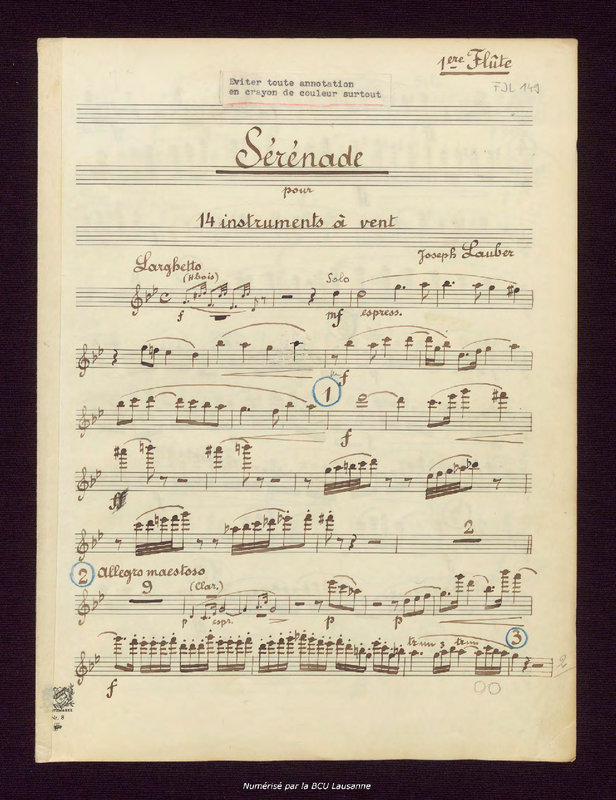 1ere Flûte
FJL 149
Eviter toute annotation
en crayon de couleur surtout
Sérénade
pour
14 instruments à vent
Joseph Lauber
Larghetto
(Hbois)
Solo
f
mf espress.
f
1
f
ff
2
2 Allegro maestoso
9
(Clar.)
p espr.
p
p
3
3
f
2
Numérisé par la BCU Lausanne